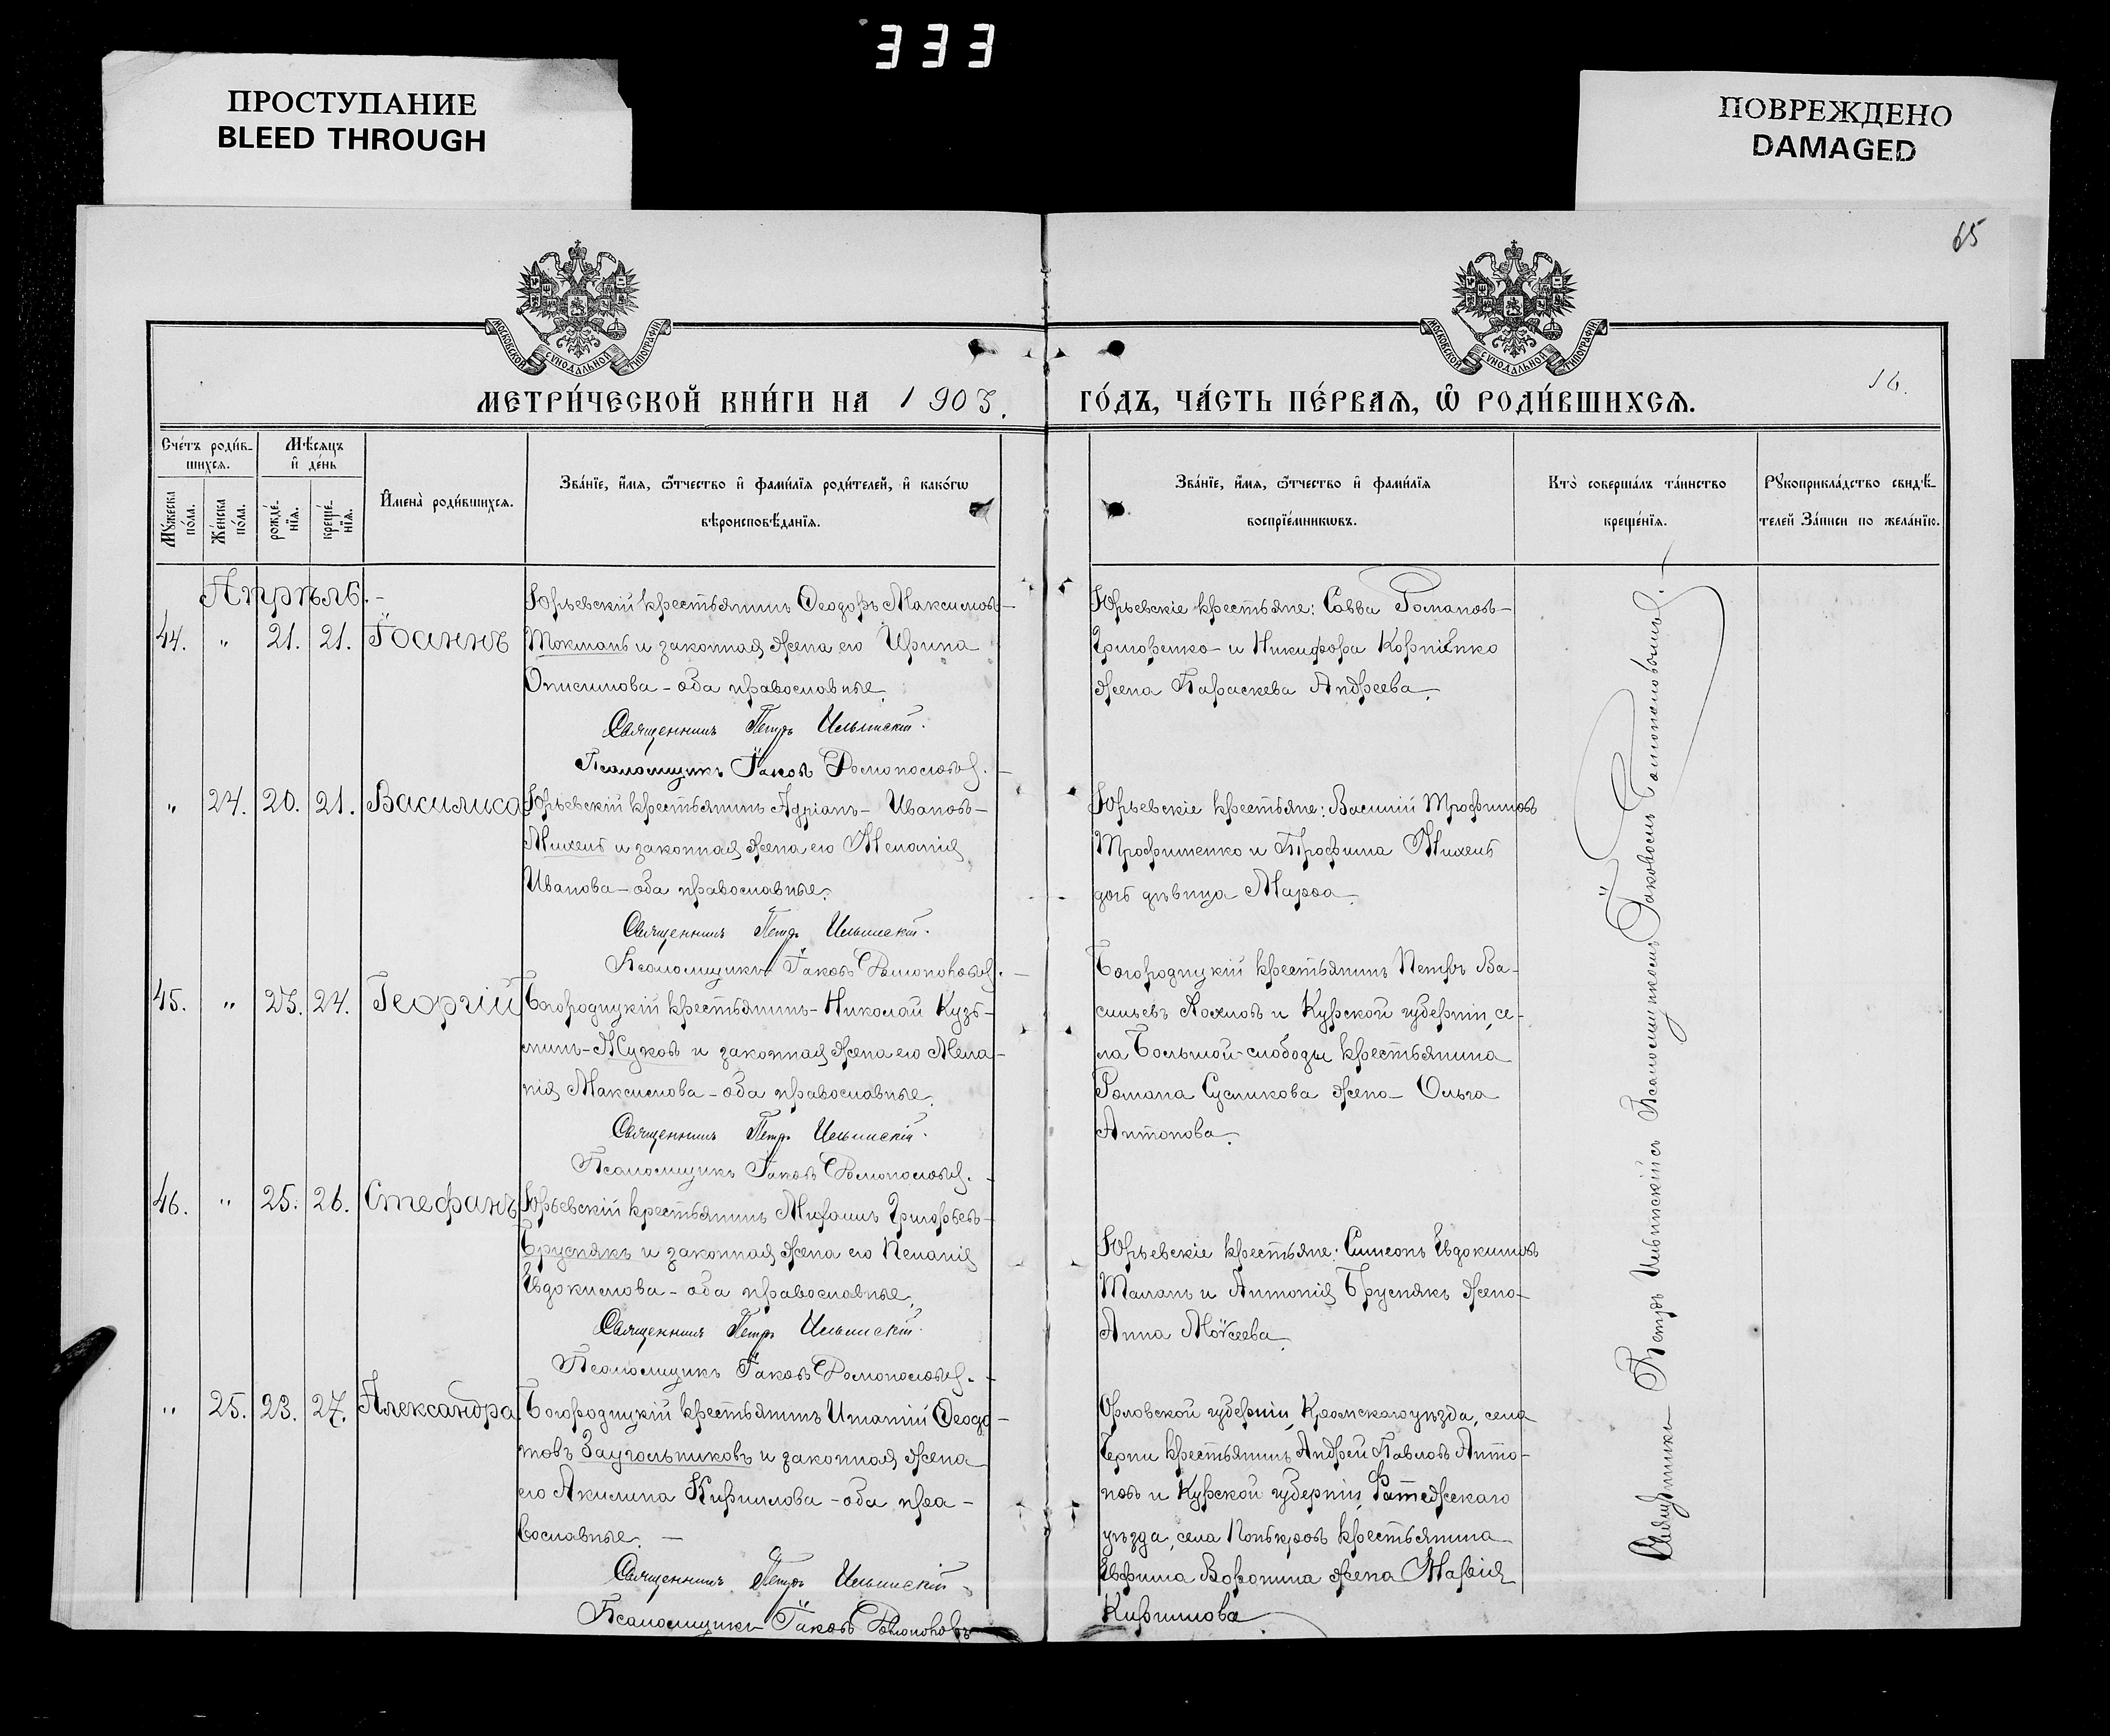 333
ПРОСТУПАНИЕ
BLEED THROUGH
ПОВРЕЖДЕНО
DAMAGED
65
МОСКОВСКОЙ СУНОДАЛЬНОЙ ТИПОГРАФІИ
МОСКОВСКОЙ СУНОДАЛЬНОЙ ТИПОГРАФІИ
16.
МЕТРИ́ЧЕСКОЙ КНИ́ГИ НА 1903. ГО́ДЪ, ЧА́СТЬ ПЕ́РВАѦ, Ѡ҆ РОДИ́ВШИХСѦ.
Сче́тъ роди́в-
шихсѧ.
Мꙋ́жеска по́ла.
Же́нска по́ла.
Мѣ́сѧцъ
и҆ де́нь
рожде́-
нїѧ.
креще́-
нїѧ.
И҆мена̀ роди́вшихсѧ.
Зва́нїе, и҆́мѧ, ѻ҆́тчество и҆ фами́лїѧ роди́телей, и҆ како́гѡ
вѣроисповѣ́данїѧ.
Зва́нїе, и҆́мѧ, ѻ҆́тчество и҆ фами́лїѧ
воспрїе́мникѡвъ.
Кто̀ соверша́лъ та́инство
креще́нїѧ.
Рꙋкоприкла́дство свидѣ́-
телей За́писи по жела́нїю.
Апрѣль.-
44. " 21. 21. Іоаннъ
Юрьевскій крестьянинъ Ѳеодоръ Максимовъ-
Токмань и законная жена его Ирина
Онисимова - оба православные.
Священникъ Петръ Ильинскій.
Псаломщикъ Іаковъ
Юрьевскіе крестьяне: Савва Романовъ-
Григоренко- и Никифора Корніенко
жена Параскева Андреева.
" 24. 20. 21. Василиса
Юрьевскій крестьянинъ Адріанъ- Ивановъ-
Михень и законная жена его Меланія
Иванова - оба православные.
Священникъ Петръ Ильинскій.
Псаломщикъ Іаковъ
Юрьевскіе крестьяне: Василій Трофимовъ
Трофименко и Трофима Михень
дочь дѣвица Марѳа.
45. " 23. 24. Георгій
Богородицкій крестьянинъ- Николай Кузь-
минъ-Жуковъ и законная жена его Мела-
нія Максимова - оба православные.
Священникъ Петръ Ильинскій.
Псаломщикъ Іаковъ
Богородицкій крестьянинъ Петръ Ва-
сильевъ и Курской губерніи, се-
ла Большой-слободы крестьянина
Романа Сусликова жена- Ольга
Антонова.
46. " 25. 26. Стефанъ
Юрьевскій крестьянинъ Михаилъ Григорьевъ-
Бруснякъ и законная жена его
Евдокимова - оба православные.
Священникъ Петръ Ильинскій.
Псаломщикъ Іаковъ
Юрьевскіе крестьяне: Симеонъ Евдокимовъ
и Антонія Бруснякъ жена-
Анна Моѵсеева.
" 25. 23. 27. Александра
Богородицкій крестьянинъ Ѳеодо-
товъ Заугольниковъ и законная жена
его Акилина Кириллова - оба пра-
вославные. -
Священникъ Петръ Ильинскій.
Псаломщикъ Іаковъ
Орловской губерніи, Кромскаго уѣзда, села
Черни крестьянинъ Андрей Павловъ Анто-
новъ и Курской губерніи, Фатежскаго
уѣзда, села крестьянина
Евфима Воронина жена Марія
Кириллова
Священникъ Петръ Ильинскій съ Псаломщикомъ Іаковомъ